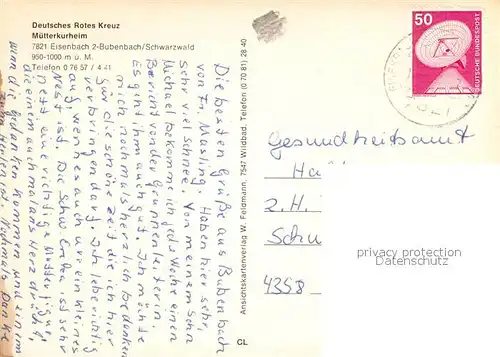 Deutsches Rotes Kreuz
Mütterkurheim
7821 Eisenbach 2-Bubenbach/Schwarzwald
950-1000 m ü. M.
Telefon 0 76 57 / 4 41
Die besten Grüße aus Bubenbach
von Fr. Masling. Haben hier sehr,
sehr viel Schnee. Von meinem Sohn
Michael bekomme ich jede Woche einen
Bericht von der Gruppenleiterin.
Es geht ihm auch gut. Ich möchte
mich nochmals herzlich bedanken
für die schöne Zeit die ich hier
verbringen darf. Ich lebe richtig
auf, wenn es auch nur ein kleines
Nest ist. Die Schw. ist sehr
nett eine richtige Mutterfigur,
die einem auch mal ans Herz drückt,
wenn die Gedanken kommen und einem
zum Heulen ist. Nochmals Danke
Ansichtskartenverlag W. Feldmann, 7547 Wildbad, Telefon (0 70 81) 28 40
CL
50
DEUTSCHE BUNDESPOST
Gesundheitsamt
Ha
z. H.
Schu
4358
privacy protection
Datenschutz